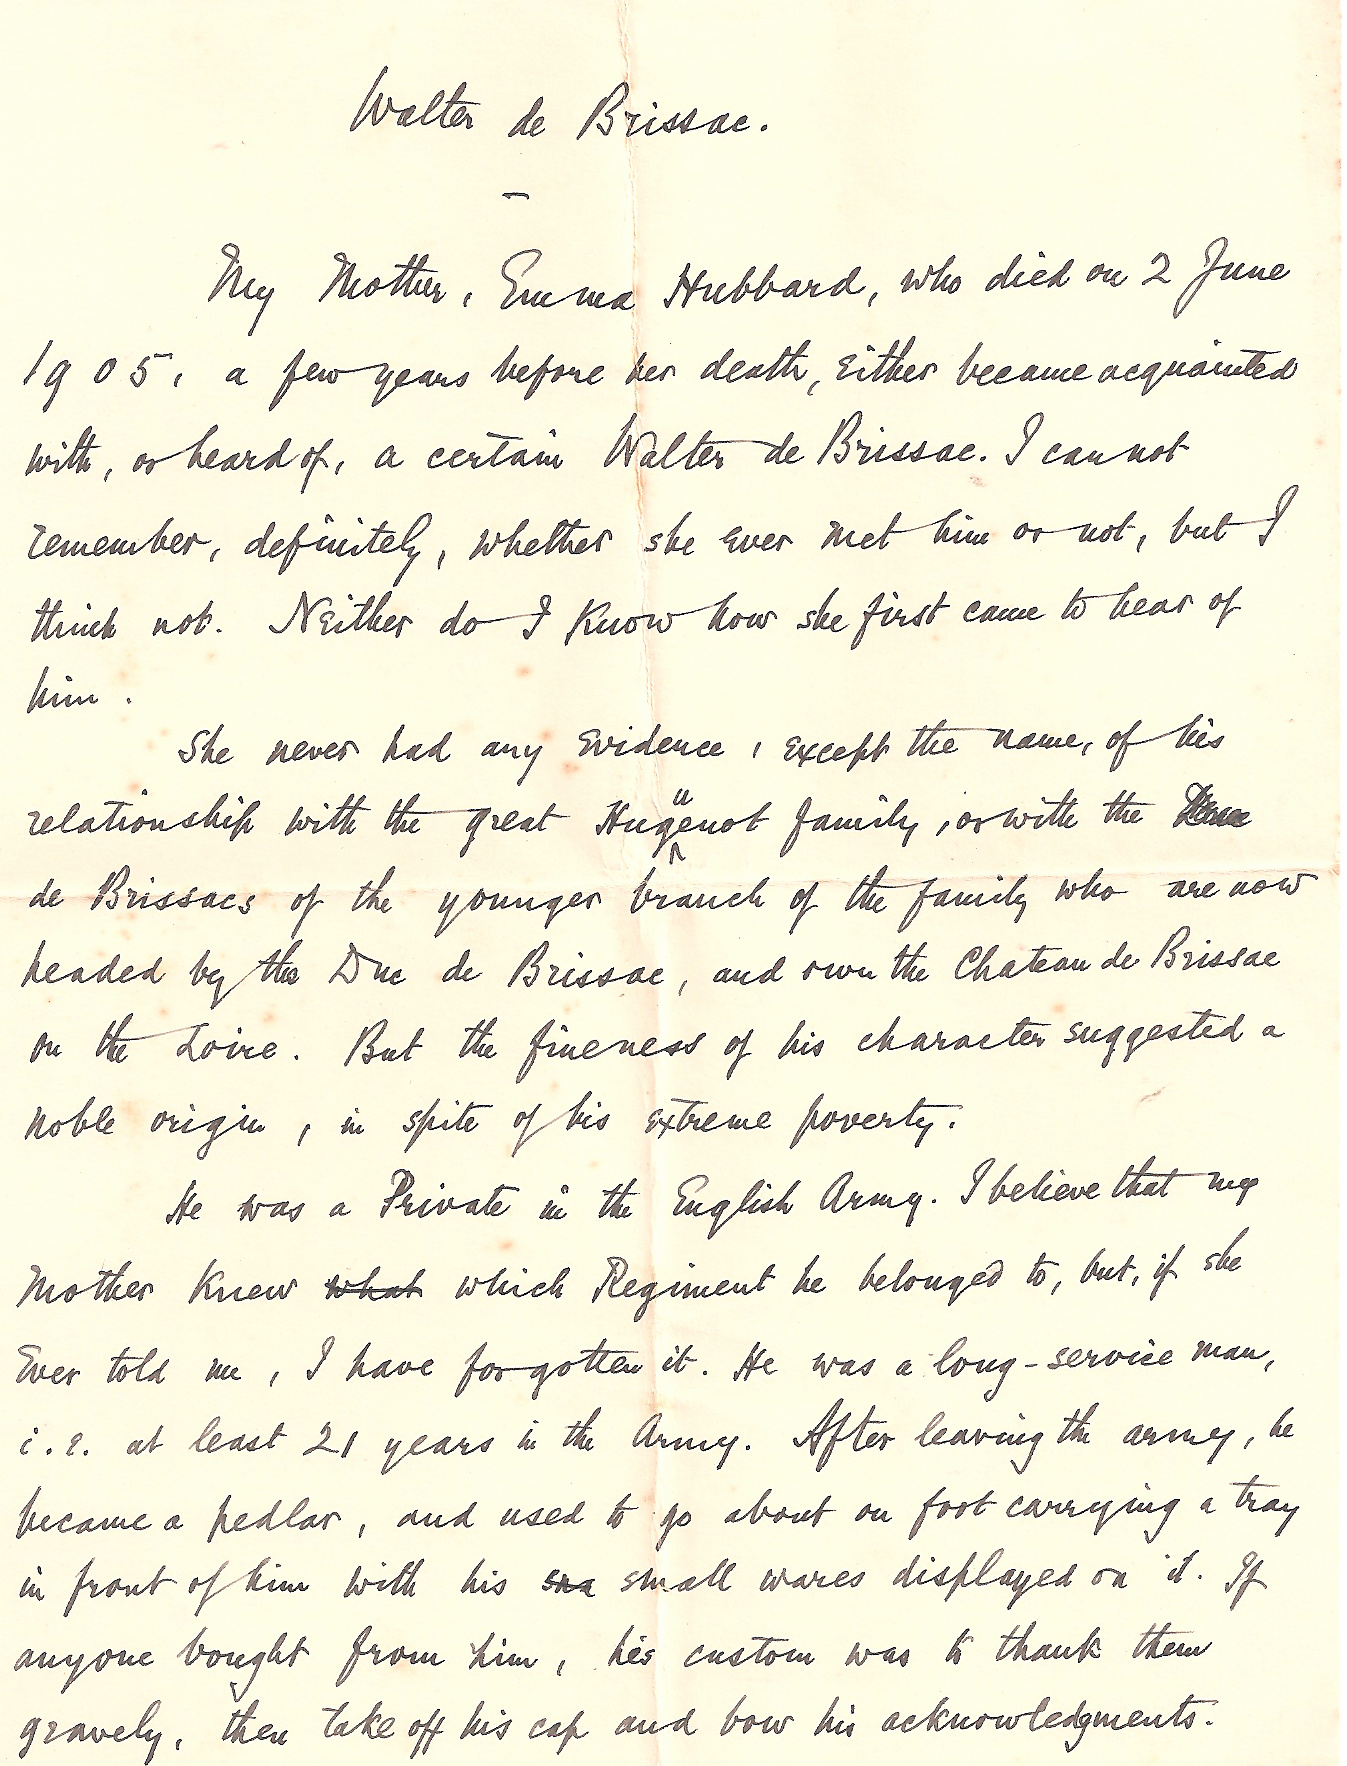 Walter de Brissac.
–
My Mother, Emma Hubbard, who died on 2 June
1905, a few years before her death, either became acquainted
with, or heard of, a certain Walter de Brissac. I cannot
remember, definitely, whether she ever met him or not, but I
think not. Neither do I know how she first came to hear of
him.
She never had any evidence, except the name, of his
relationship with the great Huguenot family, or with the
de Brissacs of the younger branch of the family who are now
headed by the Duc de Brissac, and own the Chateau de Brissac
on the Loire. But the fineness of his character suggested a
noble origin, in spite of his extreme poverty.
He was a Private in the English Army. I believe that my
Mother knew what which Regiment he belonged to, but, if she
ever told me, I have forgotten it. He was a long-service man,
i.e. at least 21 years in the Army. After leaving the army, he
became a pedlar, and used to go about on foot carrying a tray
in front of him with his sma small wares displayed on it. If
anyone bought from him, his custom was to thank them
gravely, then take off his cap and bow his acknowledgments.